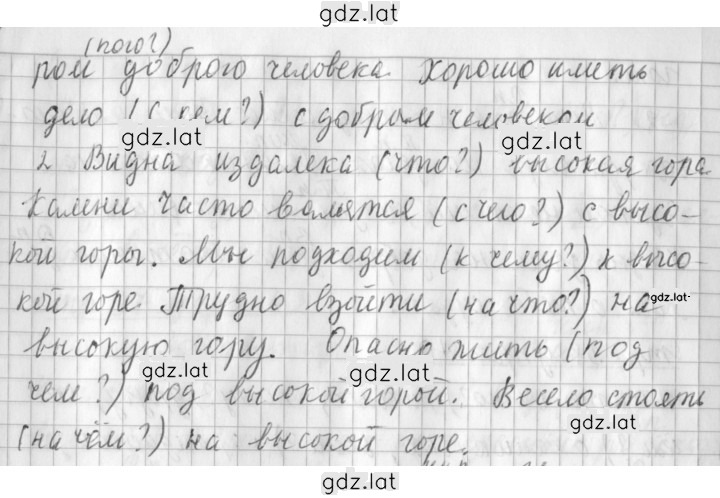 gdz.latr
(кого?)
ром доброго человека Хорошо иметь
дело (с кем?) с добрым человеком
gdz.latr
2 Видна издалека (что?) высокая гора
gdz.latr
Камни часто валятся (с чего?) с высо-
кой горы. Мы подходим (к чему?) к высо-
кой горе Трудно взойти (на что?) на
gdz.latr
высокую гору. Опасно жить (под
gdz.latr
gdz.latr
чем?) под высокой горой. Весело стоять
gdz.latr
(на чём?) на высокой горе.
gdz.latr